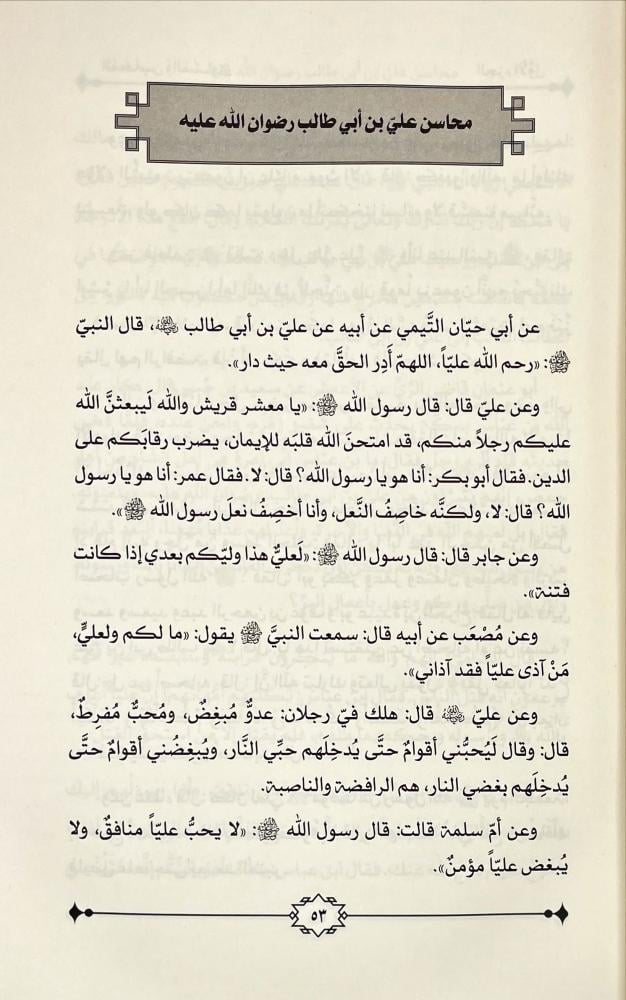 محاسن عليّ بن أبي طالب رضوان الله عليه
عن أبي حيّان التَّيمي عن أبيه عن عليّ بن أبي طالب ﵁، قال النبيّ
ﷺ: «رحم الله عليّاً، اللهمّ أَدِر الحقَّ معه حيث دار».
وعن عليّ قال: قال رسول الله ﷺ: «يا معشر قريش والله لَيبعثنَّ الله
عليكم رجلاً منكم، قد امتحنَ الله قلبَه للإيمان، يضرب رقابَكم على
الدين. فقال أبو بكر: أنا هو يا رسول الله؟ قال: لا. فقال عمر: أنا هو يا رسول
الله؟ قال: لا، ولكنَّه خاصِفُ النَّعل، وأنا أخصِفُ نعلَ رسول الله ﷺ».
وعن جابر قال: قال رسول الله ﷺ: «لَعليٌّ هذا وليّكم بعدي إذا كانت
فتنة».
وعن مُصْعَب عن أبيه قال: سمعت النبيَّ ﷺ يقول: «ما لكم ولعليٍّ،
مَنْ آذى عليّاً فقد آذاني».
وعن عليّ ﵁ قال: هلك فيّ رجلان: عدوٌّ مُبغِضٌ، ومُحبٌّ مُفرِطٌ،
قال: وقال لَيُحبُّني أقوامٌ حتَّى يُدخِلَهم حبِّي النَّار، ويُبغِضُني أقوامٌ حتَّى
يُدخِلَهم بغضي النار، هم الرافضة والناصبة.
وعن أمّ سلمة قالت: قال رسول الله ﷺ: «لا يحبُّ عليّاً منافقٌ، ولا
يُبغض عليّاً مؤمنٌ».
٥٣